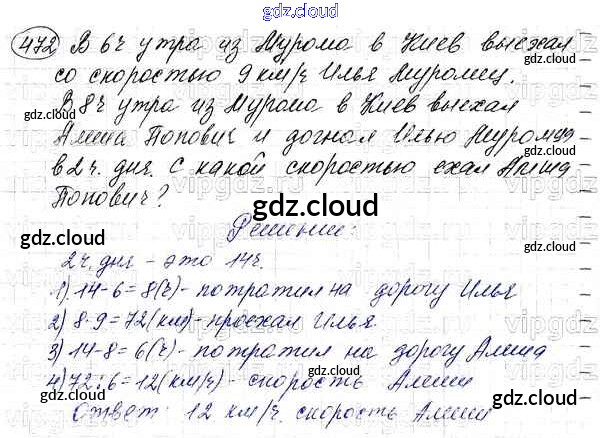 gdz.cloud
472 В 6ч утра из Мурома в Киев выехал
со скоростью 9 км/ч Илья Муромец.
gdz.cloud gdz.cloud
В 8ч утра из Мурома в Киев выехал
Алёша Попович и догнал Илью Муромца
в 2 ч. дня. С какой скоростью ехал Алёша
Попович?
gdz.cloud
Решение:
gdz.cloud
2ч. дня - это 14ч.
1) 14-6=8(ч)- потратил на дорогу Илья
gdz.cloud gdz.cloud
2) 8·9=72(км)- проехал Илья
3) 14-8=6(ч)- потратил на дорогу Алёша
4) 72:6=12(км/ч)- скорость Алёши
gdz.cloud
Ответ: 12 км/ч. скорость Алёши